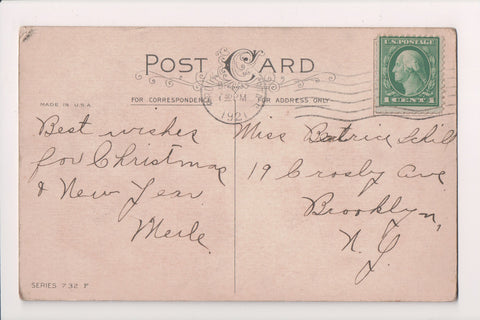 POST CARD
MADE IN U.S.A.
FOR CORRESPONDENCE
FOR ADDRESS ONLY
PM
1921
U.S. POSTAGE
1 CENT 1
Best wishes
for Christmas
& New Year
Merle.
Miss Beatrice Schill
19 Crosby Ave
Brooklyn,
N.Y.
SERIES 732 F